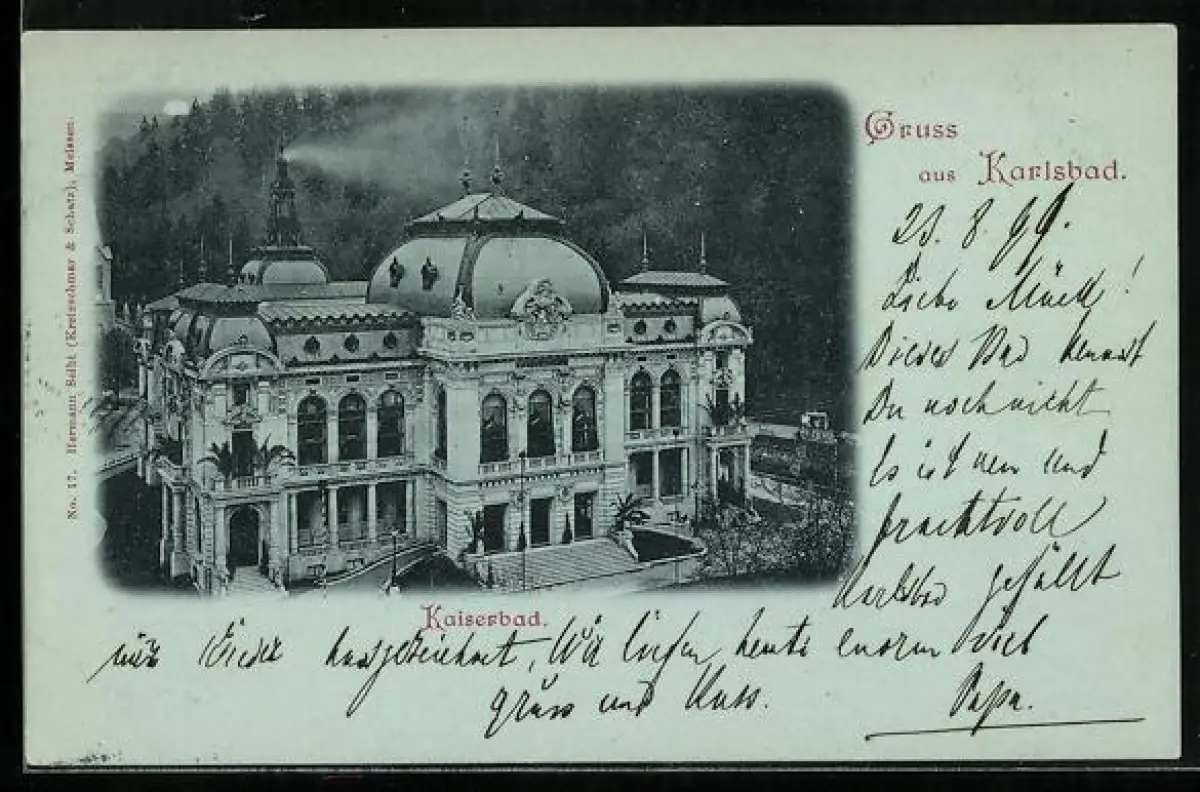 No. 17. Hermann Seibt (Kretzschmar & Schatz), Meissen.
Gruss
aus Karlsbad.
23. 8. 99.
Liebe !
Dieses Bad kennst
Du noch nicht
Es ist neu und
prachtvoll
Karlsbad gefällt
Kaiserbad.
mir wieder ausgezeichnet, Wir liefen heute enorm viel
Gruss und Kuss.
Papa.